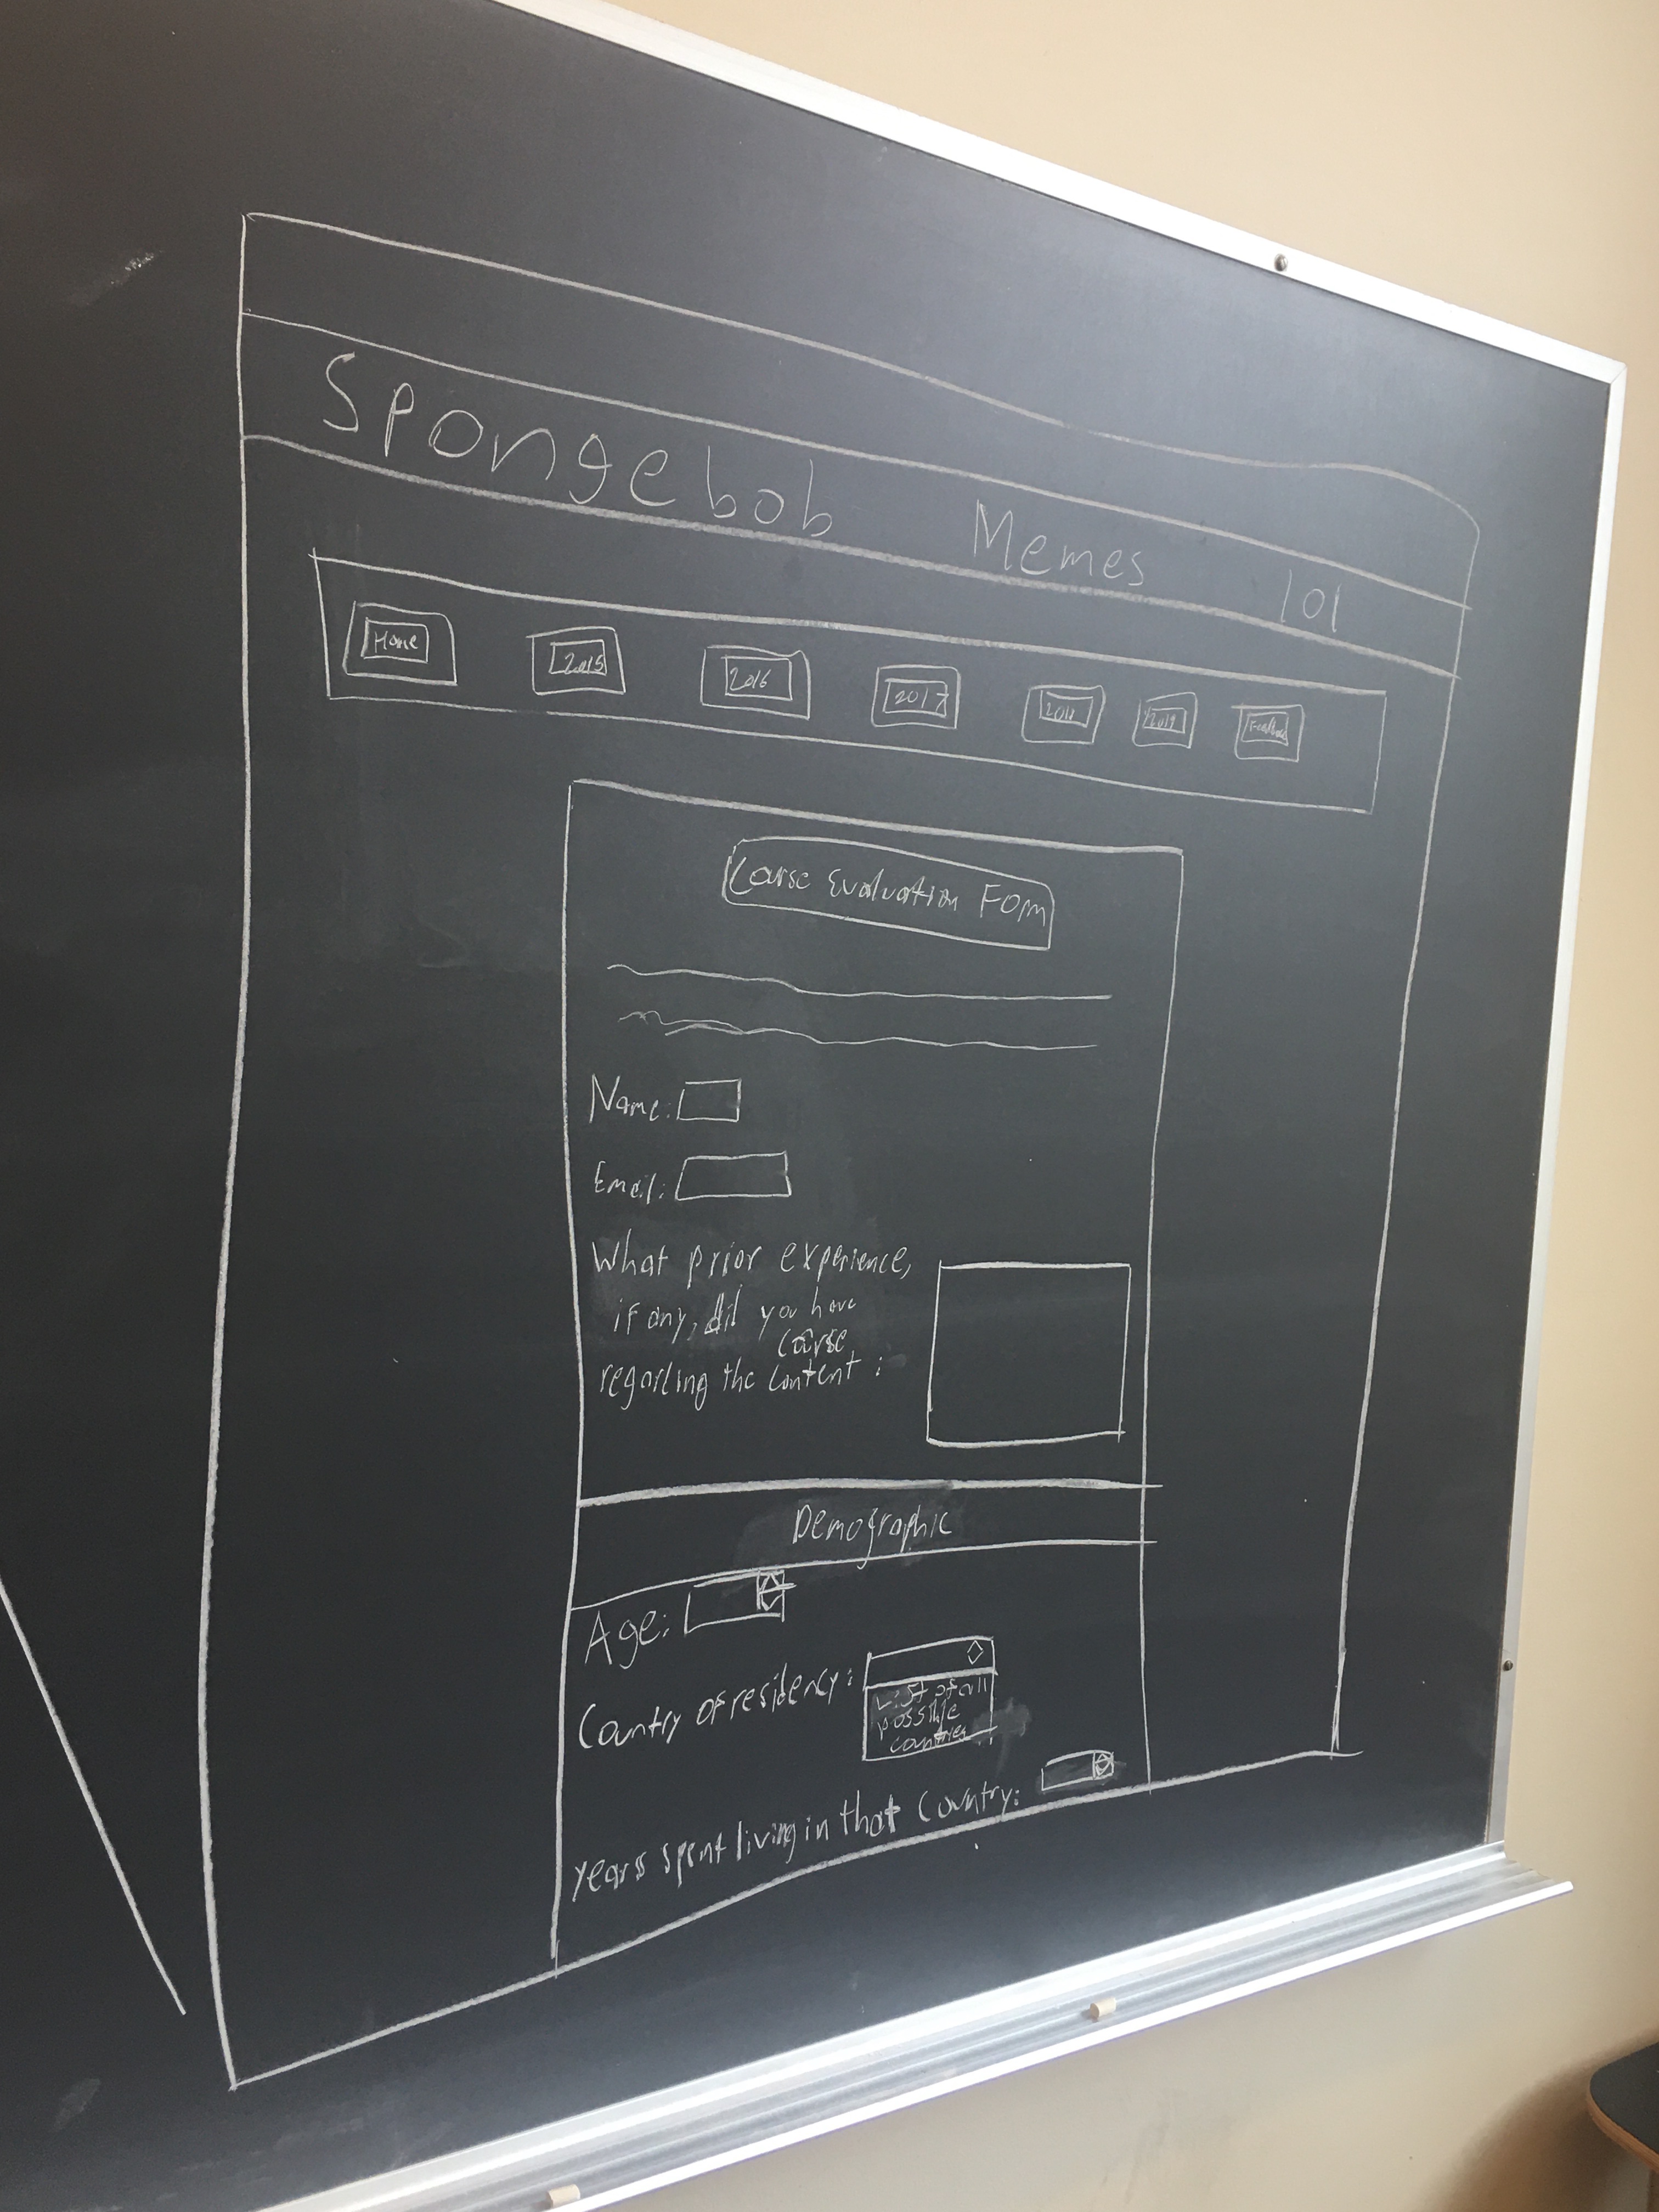 Spongebob Memes 101
Home 2015 2016 2017 2018 2019
Course Evaluation Form
Name:
Email:
What prior experience,
if any, did you have
course
regarding the content :
Demographic
Age:
Country of residency:
List of all
possible
countries
years spent living in that Country: